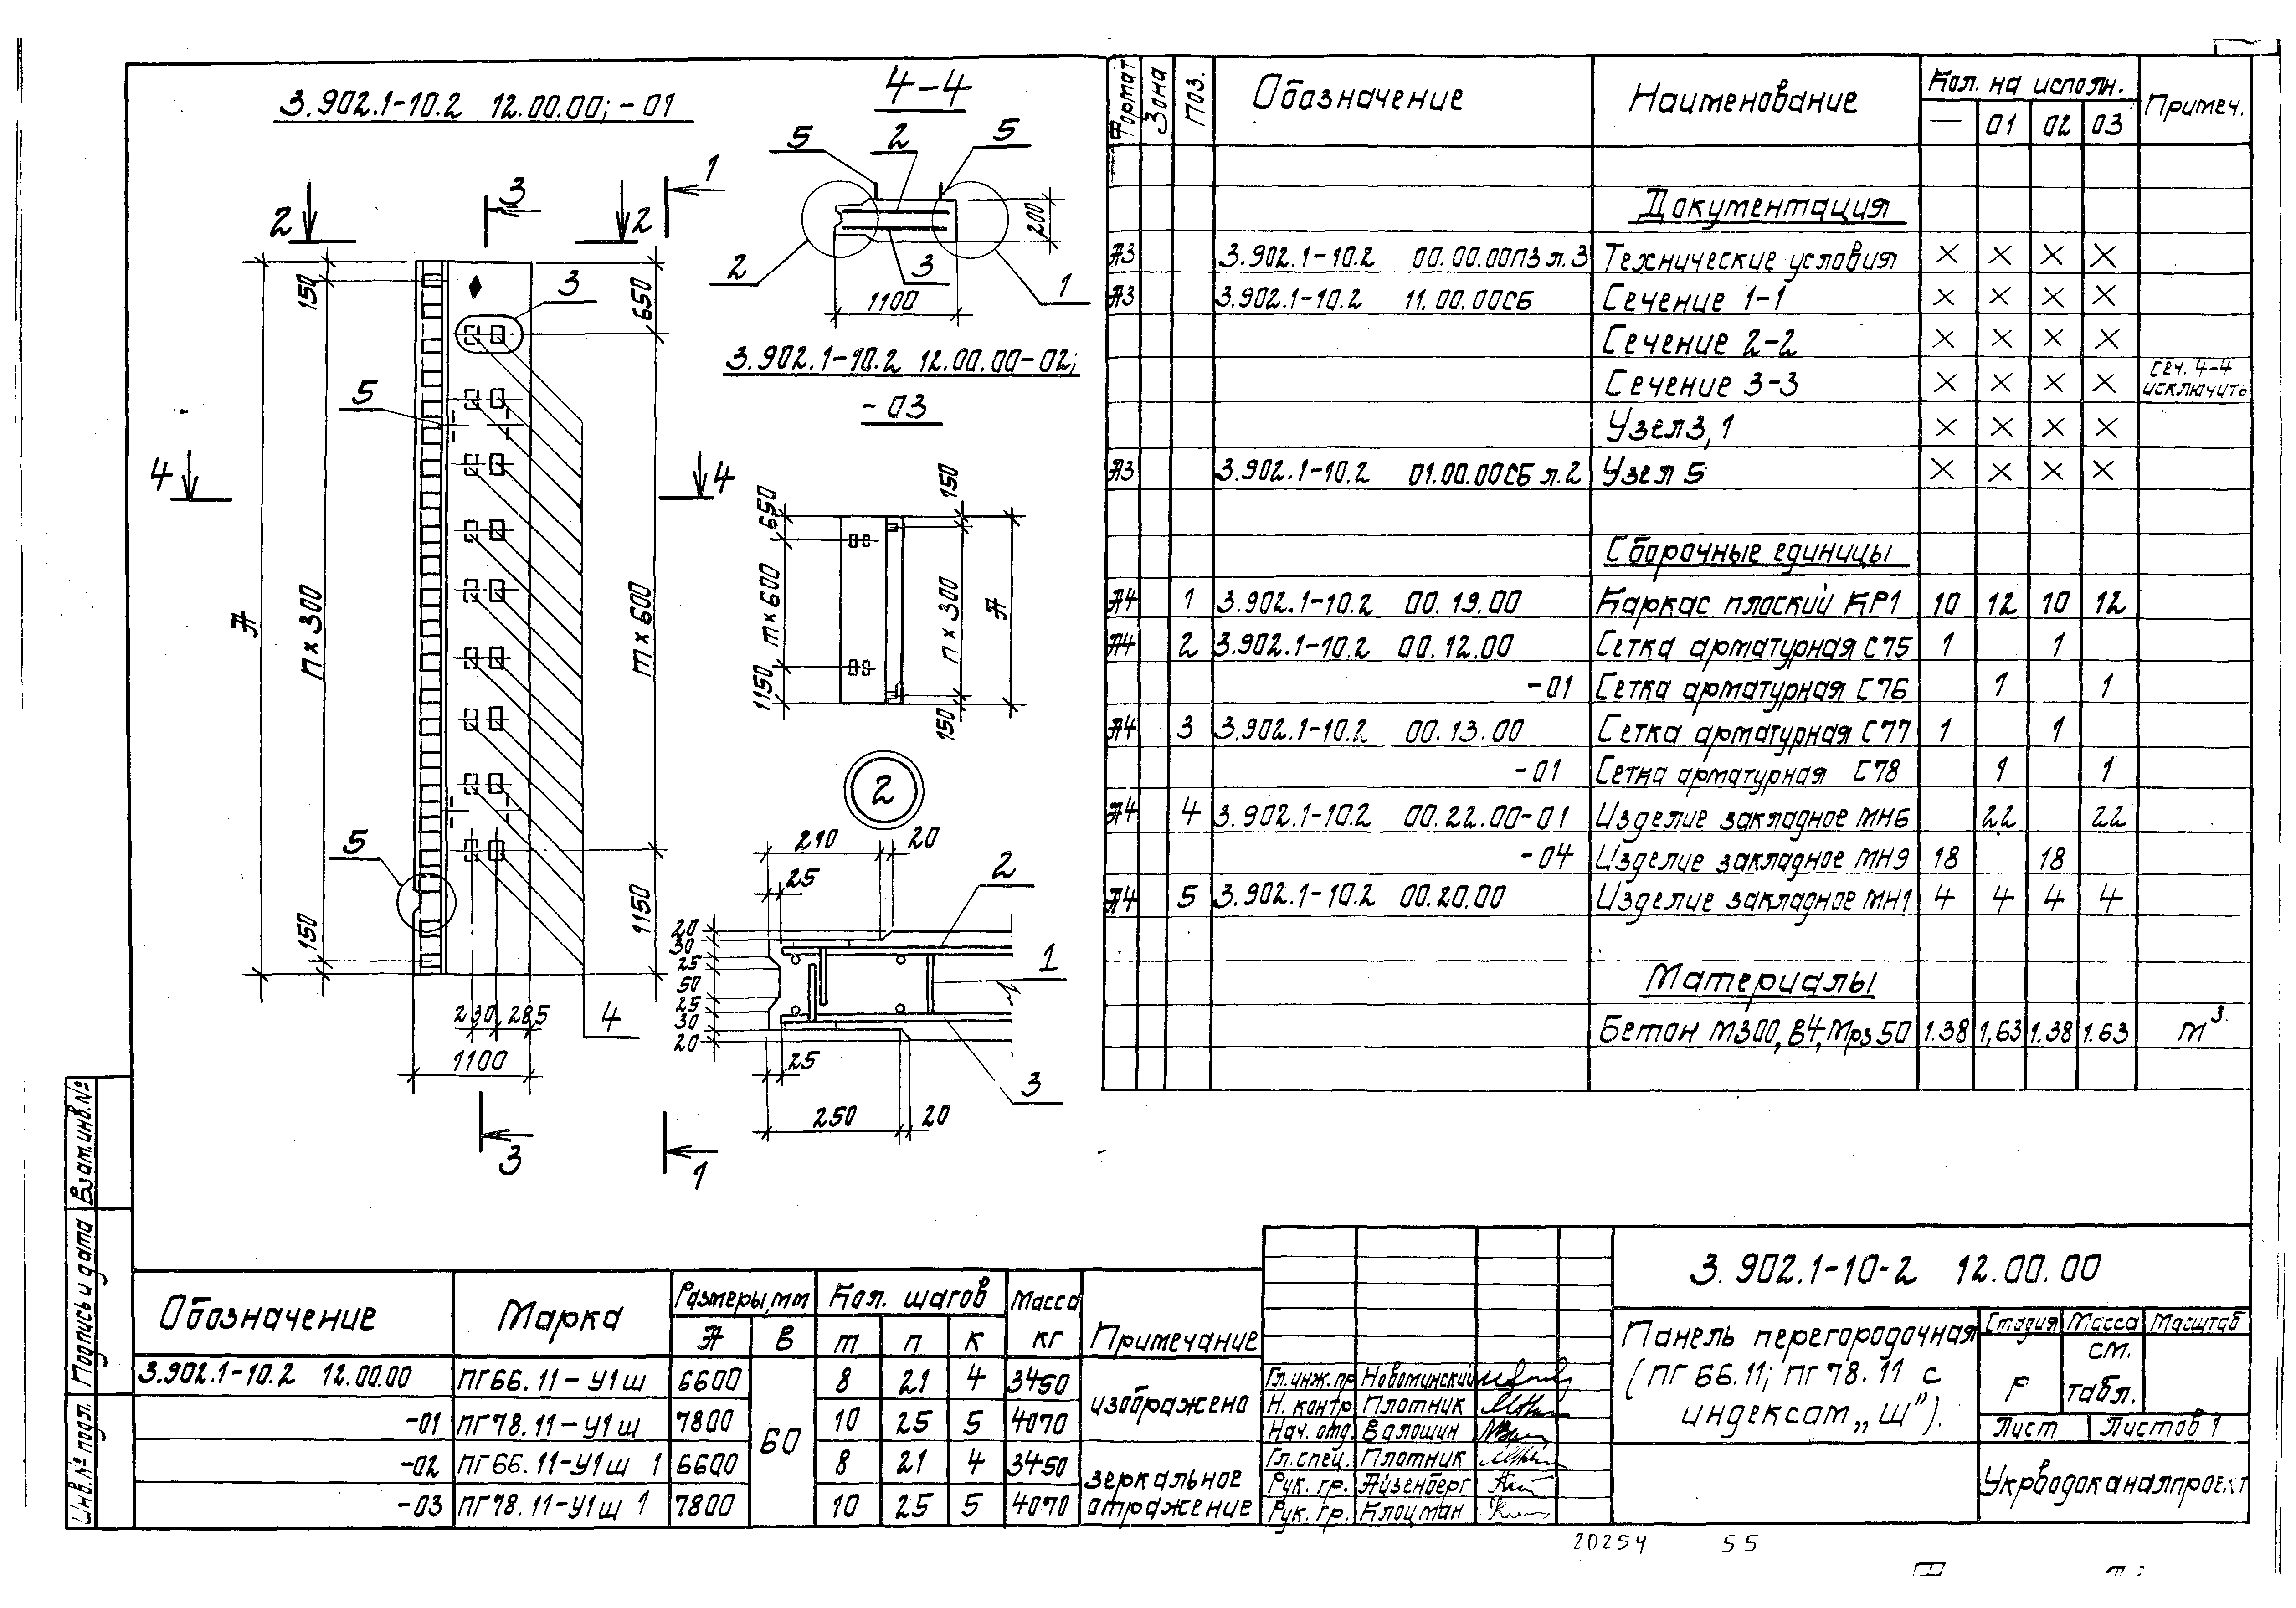 3.902.1-10.2 12.00.00; -01
4-4
5
2
5
2
3
1
200
1100
3.902.1-10.2 12.00.00-02;
-03
2
3
2
1
150
3
650
5
4
4
А
n×300
m×600
5
150
1150
230
285
1100
4
3
1
650
150
m×600
n×300
А
1150
150
2
210
20
25
2
20
30
25
50
25
30
20
1
25
3
250
20
Формат
Зона
Поз.
Обозначение
Наименование
Кол. на исполн.
— 01 02 03
Примеч.
Документация
А3 3.902.1-10.2 00.00.00ПЗ л.3 Технические условия × × × ×
А3 3.902.1-10.2 11.00.00СБ Сечение 1-1 × × × ×
Сечение 2-2 × × × ×
Сечение 3-3 × × × × сеч. 4-4 исключить
Узел 3, 1 × × × ×
А3 3.902.1-10.2 01.00.00СБ л.2 Узел 5 × × × ×
Сборочные единицы
А4 1 3.902.1-10.2 00.19.00 Каркас плоский КР1 10 12 10 12
А4 2 3.902.1-10.2 00.12.00 Сетка арматурная С75 1 1
-01 Сетка арматурная С76 1 1
А4 3 3.902.1-10.2 00.13.00 Сетка арматурная С77 1 1
-01 Сетка арматурная С78 1 1
А4 4 3.902.1-10.2 00.22.00-01 Изделие закладное МН6 22 22
-04 Изделие закладное МН9 18 18
А4 5 3.902.1-10.2 00.20.00 Изделие закладное МН1 4 4 4 4
Материалы
Бетон М300, В4, Мрз 50 1.38 1,63 1.38 1.63 м³
Обозначение Марка Размеры, мм Кол. шагов Масса кг Примечание
А В m n к
3.902.1-10.2 12.00.00 ПГ66.11-У1ш 6600 60 8 21 4 3450 изображено
-01 ПГ78.11-У1ш 7800 10 25 5 4070
-02 ПГ66.11-У1ш 1 6600 8 21 4 3450 зеркальное
-03 ПГ78.11-У1ш 1 7800 10 25 5 4070 отражение
3.902.1-10-2 12.00.00
Панель перегородочная
(ПГ66.11; ПГ78.11 с
индексам „Ш").
Стадия Масса Масштаб
Р см. табл.
Лист Листов 1
Укрводоканалпроект
Гл. инж. пр Новоминский
Н. контр Плотник
Нач. отд. Валошин
Гл. спец. Плотник
Рук. гр. Айзенберг
Рук. гр. Клоцман
Взам. инв. №
Подпись и дата
Инв. № подл.
20254 55